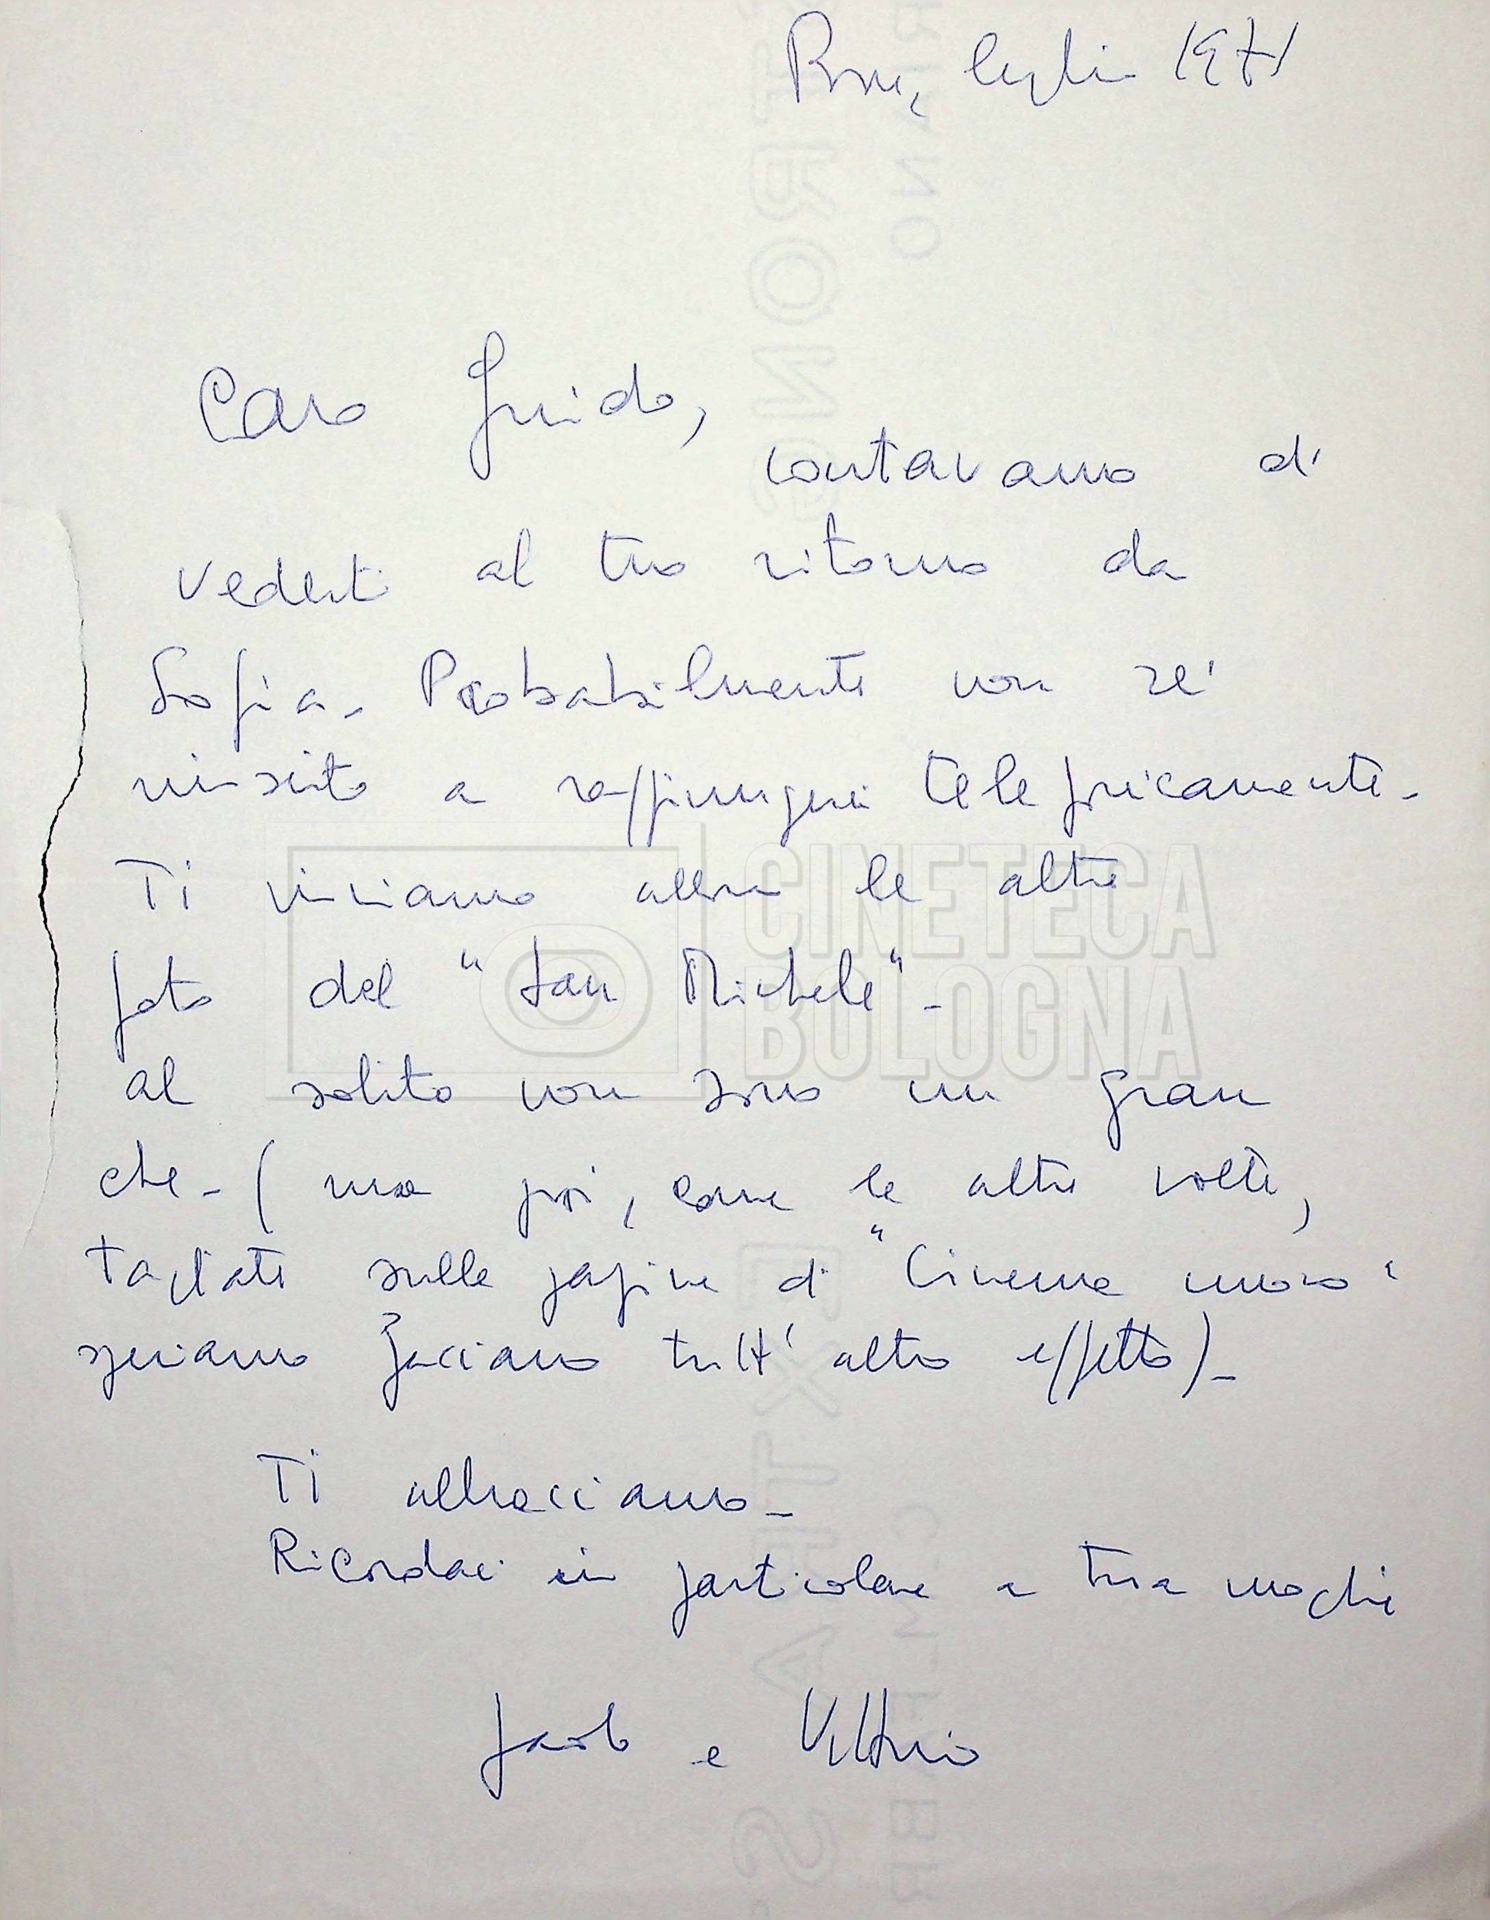 Roma, luglio 1971
Caro Guido,
contavamo di
vederti al tuo ritorno da
Sofia. Probabilmente non sei
riuscito a raggiungerci telefonicamente.
Ti inviamo allora le altre
foto del "San Michele".
CINETECA
BOLOGNA
al solito non sono un gran
che. (ma poi, come le altre volte,
tagliate sulle pagine di "Cinema nuovo"
speriamo facciano tutt'altro effetto).
Ti abbracciamo.
Ricordaci in particolare a tua moglie
Paolo e Vittorio